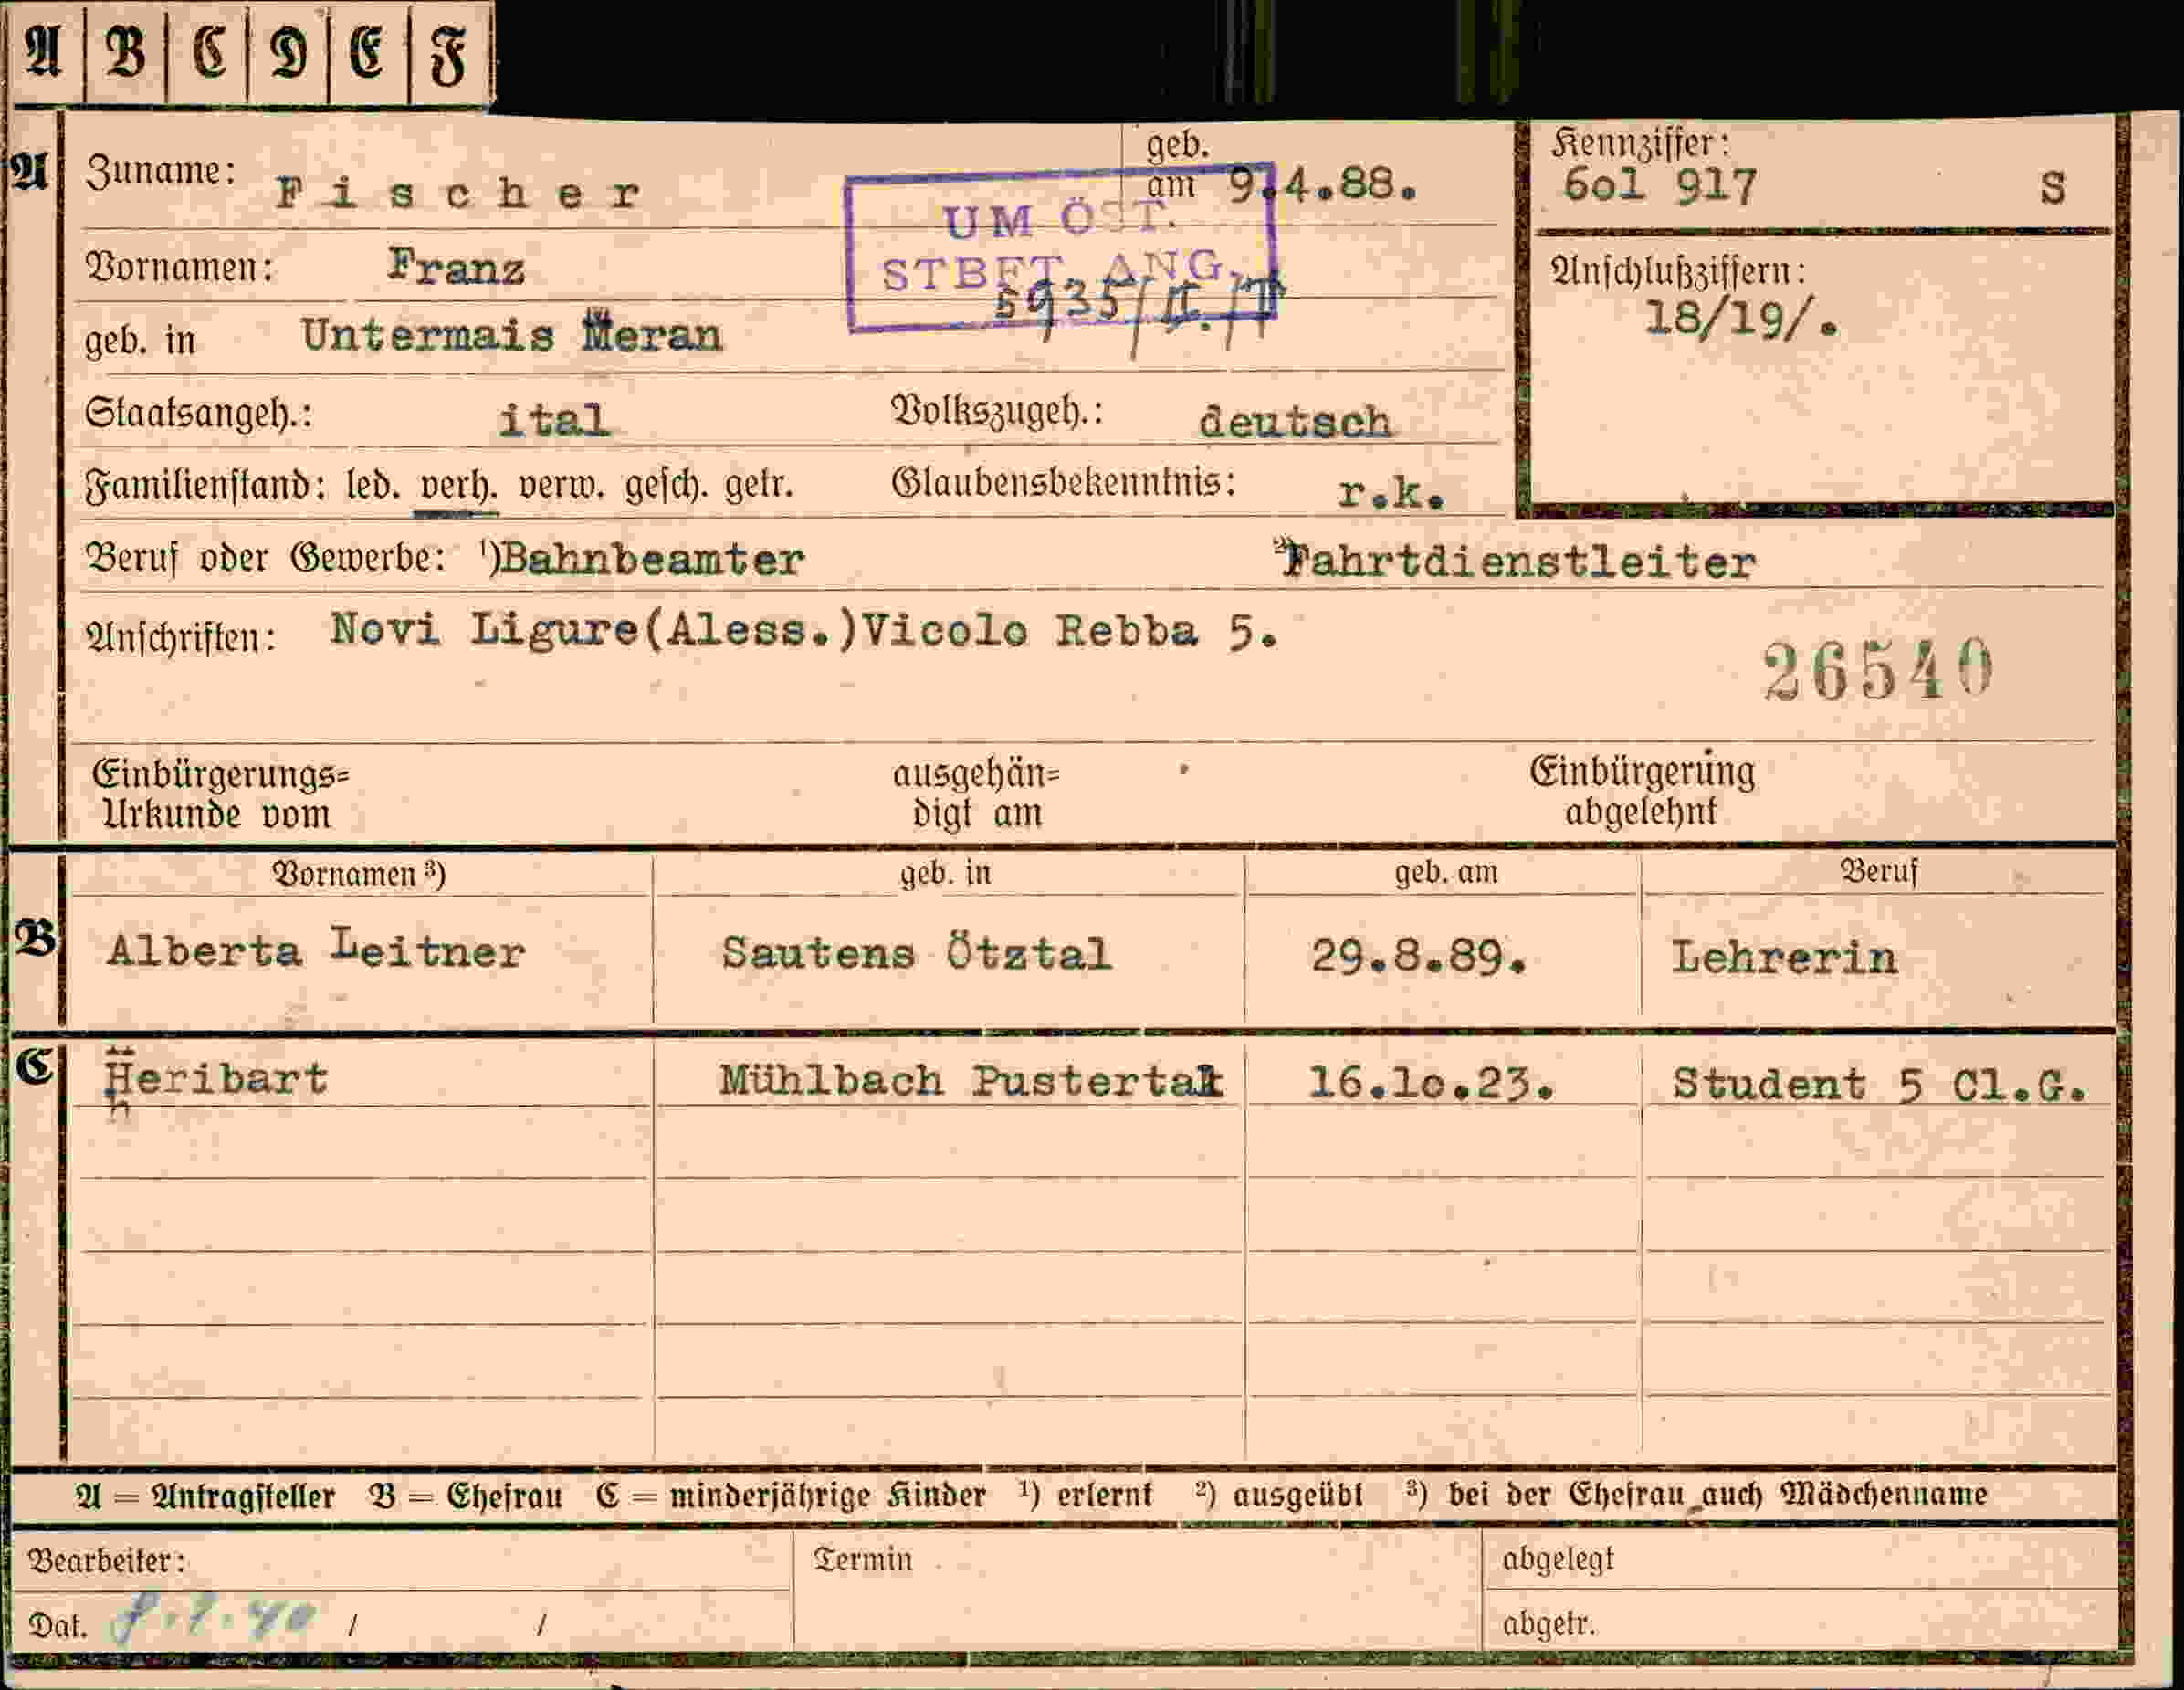 A B C D E F
A Zuname: Fischer geb. am 9.4.88. Kennziffer: 6o1 917 S
UM ÖST.
STBET. ANG.
5935/II.
Vornamen: Franz Anschlußziffern: 18/19/.
geb. in Untermais Meran
Staatsangeh.: ital Volkszugeh.: deutsch
Familienstand: led. verh. verw. gesch. getr. Glaubensbekenntnis: r.k.
Beruf oder Gewerbe: ¹)Bahnbeamter ²)Fahrtdienstleiter
Anschriften: Novi Ligure(Aless.)Vicolo Rebba 5.
26540
Einbürgerungs= ausgehän= Einbürgerung
Urkunde vom digt am abgelehnt
Vornamen ³) geb. in geb. am Beruf
B Alberta Leitner Sautens Ötztal 29.8.89. Lehrerin
C Heribart Mühlbach Pustertal 16.1o.23. Student 5 Cl.G.
A = Antragsteller B = Ehefrau C = minderjährige Kinder ¹) erlernt ²) ausgeübt ³) bei der Ehefrau auch Mädchenname
Bearbeiter: Termin abgelegt
Dat. / / abgetr.